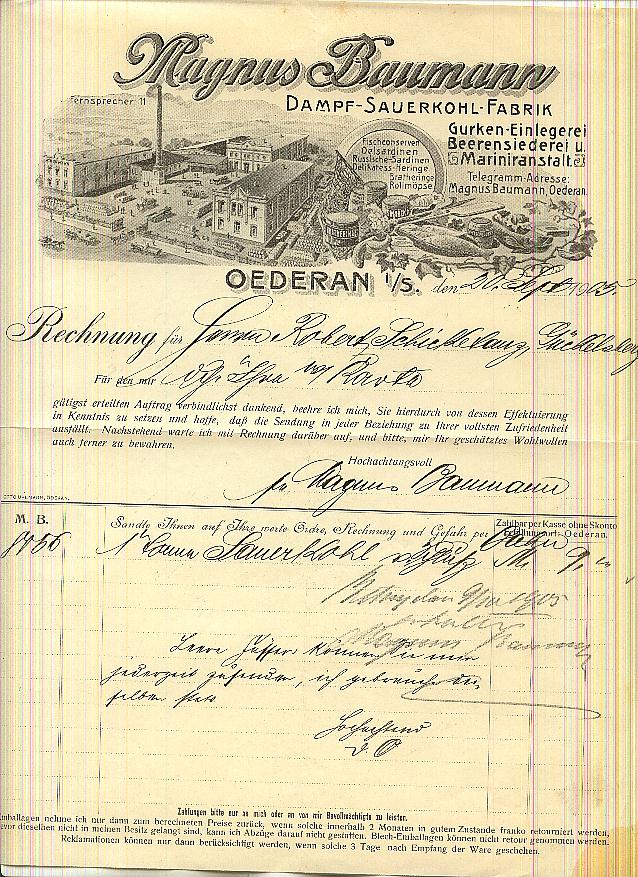 Magnus Baumann
Fernsprecher 11
DAMPF-SAUERKOHL-FABRIK
Gurken-Einlegerei
Beerensiederei u.
Mariniranstalt.
Telegramm-Adresse:
Magnus Baumann, Oederan.
Fischconserven
Oelsardinen
Russische-Sardinen
Delikatess-Heringe
Bratheringe
Rollmöpse
OEDERAN i/S. den 20. Sept 1905.
Rechnung für Herrn Robert Schicketanz,
Für den mir Karte
gütigst erteilten Auftrag verbindlichst dankend, beehre ich mich, Sie hierdurch von dessen Effektuierung
in Kenntnis zu setzen und hoffe, daß die Sendung in jeder Beziehung zu Ihrer vollsten Zufriedenheit
ausfällt. Nachstehend warte ich mit Rechnung darüber auf, und bitte, mir Ihr geschätztes Wohlwollen
auch ferner zu bewahren.
Hochachtungsvoll
Magnus Baumann
OTTO ULLMANN, OEDERAN.
M. B. Sandte Ihnen auf Ihre werte Ordre, Rechnung und Gefahr per
Zahlbar per Kasse ohne Skonto
Erfüllungsort: Oederan.
1 Tonne Sauerkohl M. 9,
9/10 1905
Magnus Baumann
Leere Fässer können Sie mir
jederzeit zusenden, ich gebrauche die
selben stets
Hochachtend
D. O
Zahlungen bitte nur an mich oder an von mir Bevollmächtigte zu leisten.
Emballagen nehme ich nur dann zum berechneten Preise zurück, wenn solche innerhalb 2 Monaten in gutem Zustande franko retourniert werden,
bevor dieselben nicht in meinen Besitz gelangt sind, kann ich Abzüge darauf nicht gestatten. Blech-Emballagen können nicht retour genommen werden.
Reklamationen können nur dann berücksichtigt werden, wenn solche 3 Tage nach Empfang der Ware geschehen.